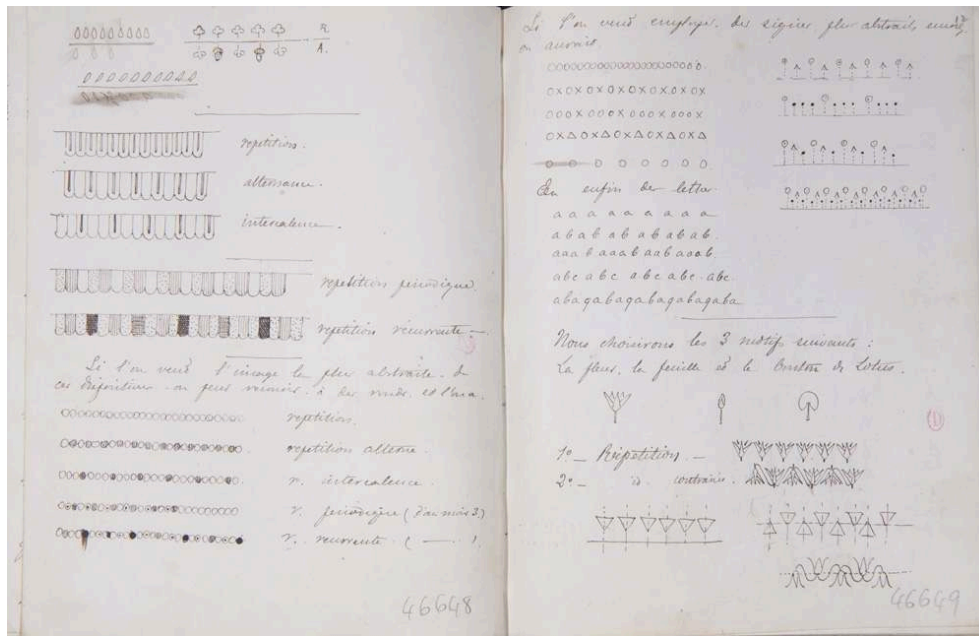 R.
A.
repetition.
alternance.
intercalence.
repetition périodique.
repetition récurrente —.
Si l'on veut l'image la plus abstraite de
ces dispositions on peut recourir à des ronds, et l'on a.
repetition.
repetition alterne.
r. intercalence.
r. périodique (d'au moins 3.)
r. recurrente (—).
46648
Si l'on veut employer des signes plus abstraits encore,
on aurait.
o x o x o x o x o x o x o x o x o x
o x △ o x △ o x △ o x △ o x △
En enfin des lettres
a a a a a a a a a
a b a b a b a b a b a b.
aaa b aaa b aa b aaa b.
abc abc abc abc abc.
abaqabaqabaqabaqaba
Nous choisirons les 3 motifs suivants :
La fleur, la feuille et le bouton de Lotus.
1° — Répétition. —
2° — id contrariée.
(1)
46649